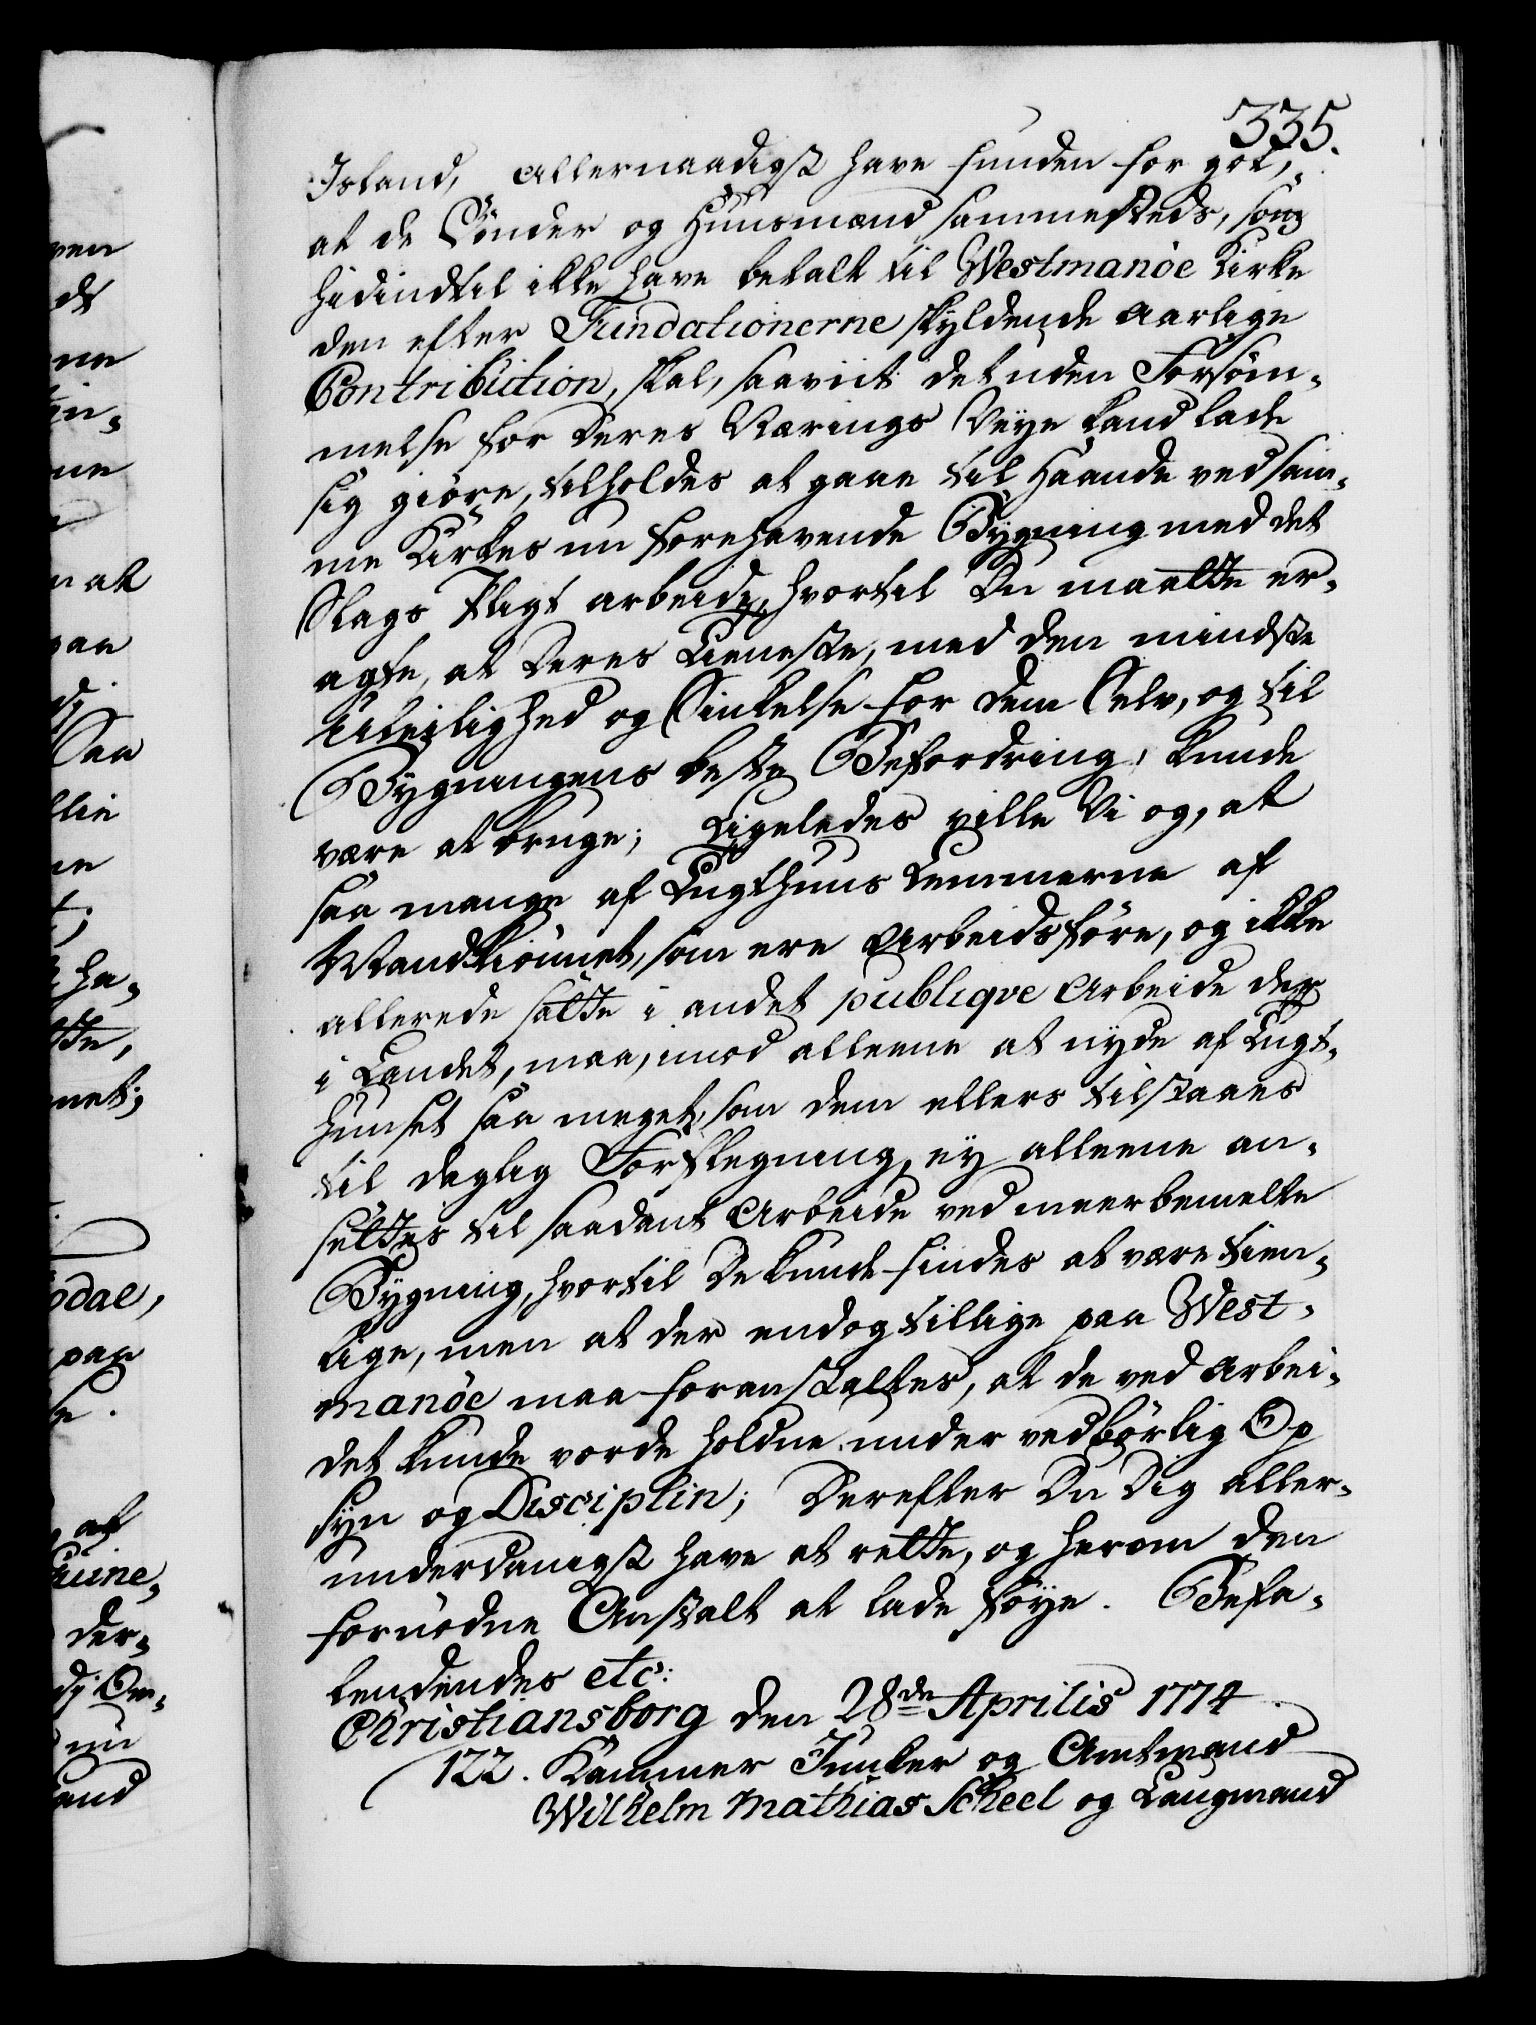 335.
Island, Allernaadigst have funden for got,
at de Bönder og Huusmænd sammesteds, som
hidindtil ikke have betalt til Westmanöe Kirke
den efter Fundationerne skyldende Aarlige
Contribution, skal, saaviit det uden Forsöm-
melse for deres Nærings Veye kand lade
sig giöre, tilholdes at gaae til Haande ved sam-
me Kirkes nu forehavende Bygning med det
Slags Pligt arbeide, hvortil Du maatte er-
agte, at deres Tieneste, med den mindste
Uleilighed og Sinkelse for dem Selv, og til
Bygningens beste Befordring, kunde
være at bruge; Ligeledes ville Vi og, at
saa mange af Tugthuus Lemmerne af
Mandkiönnet, som ere Arbeidsföre, og ikke
allerede satte i andet publiqve Arbeide der
i Landet, maa, imod alleene at nyde af Tugt-
huuset saa meget, som dem ellers tilstaaes
til daglig Forplegning, ey alleene an-
settes til saadant Arbeide ved meerbemelte
Bygning, hvortil De kunde findes at være tien-
lige, men at der endog tillige paa West-
manöe maa foranstaltes, at de ved Arbei-
det kunde vorde holdne under vedbörlig Op
syn og Disciplin; Derefter Du Dig aller-
underdanigst have at rette, og herom den
fornödne Anstalt at lade föye. Befa-
lendendes etc:
Christiansborg den 28de Aprilis 1774.
122. Kammer Junker og Amtmand
Wilhelm Mathias Scheel og Laugmand
ven
ds
ne
ne
n at
paa
Saa
ne
ha-
tte,
net;
ödal,
paa
af
der-
nu
and